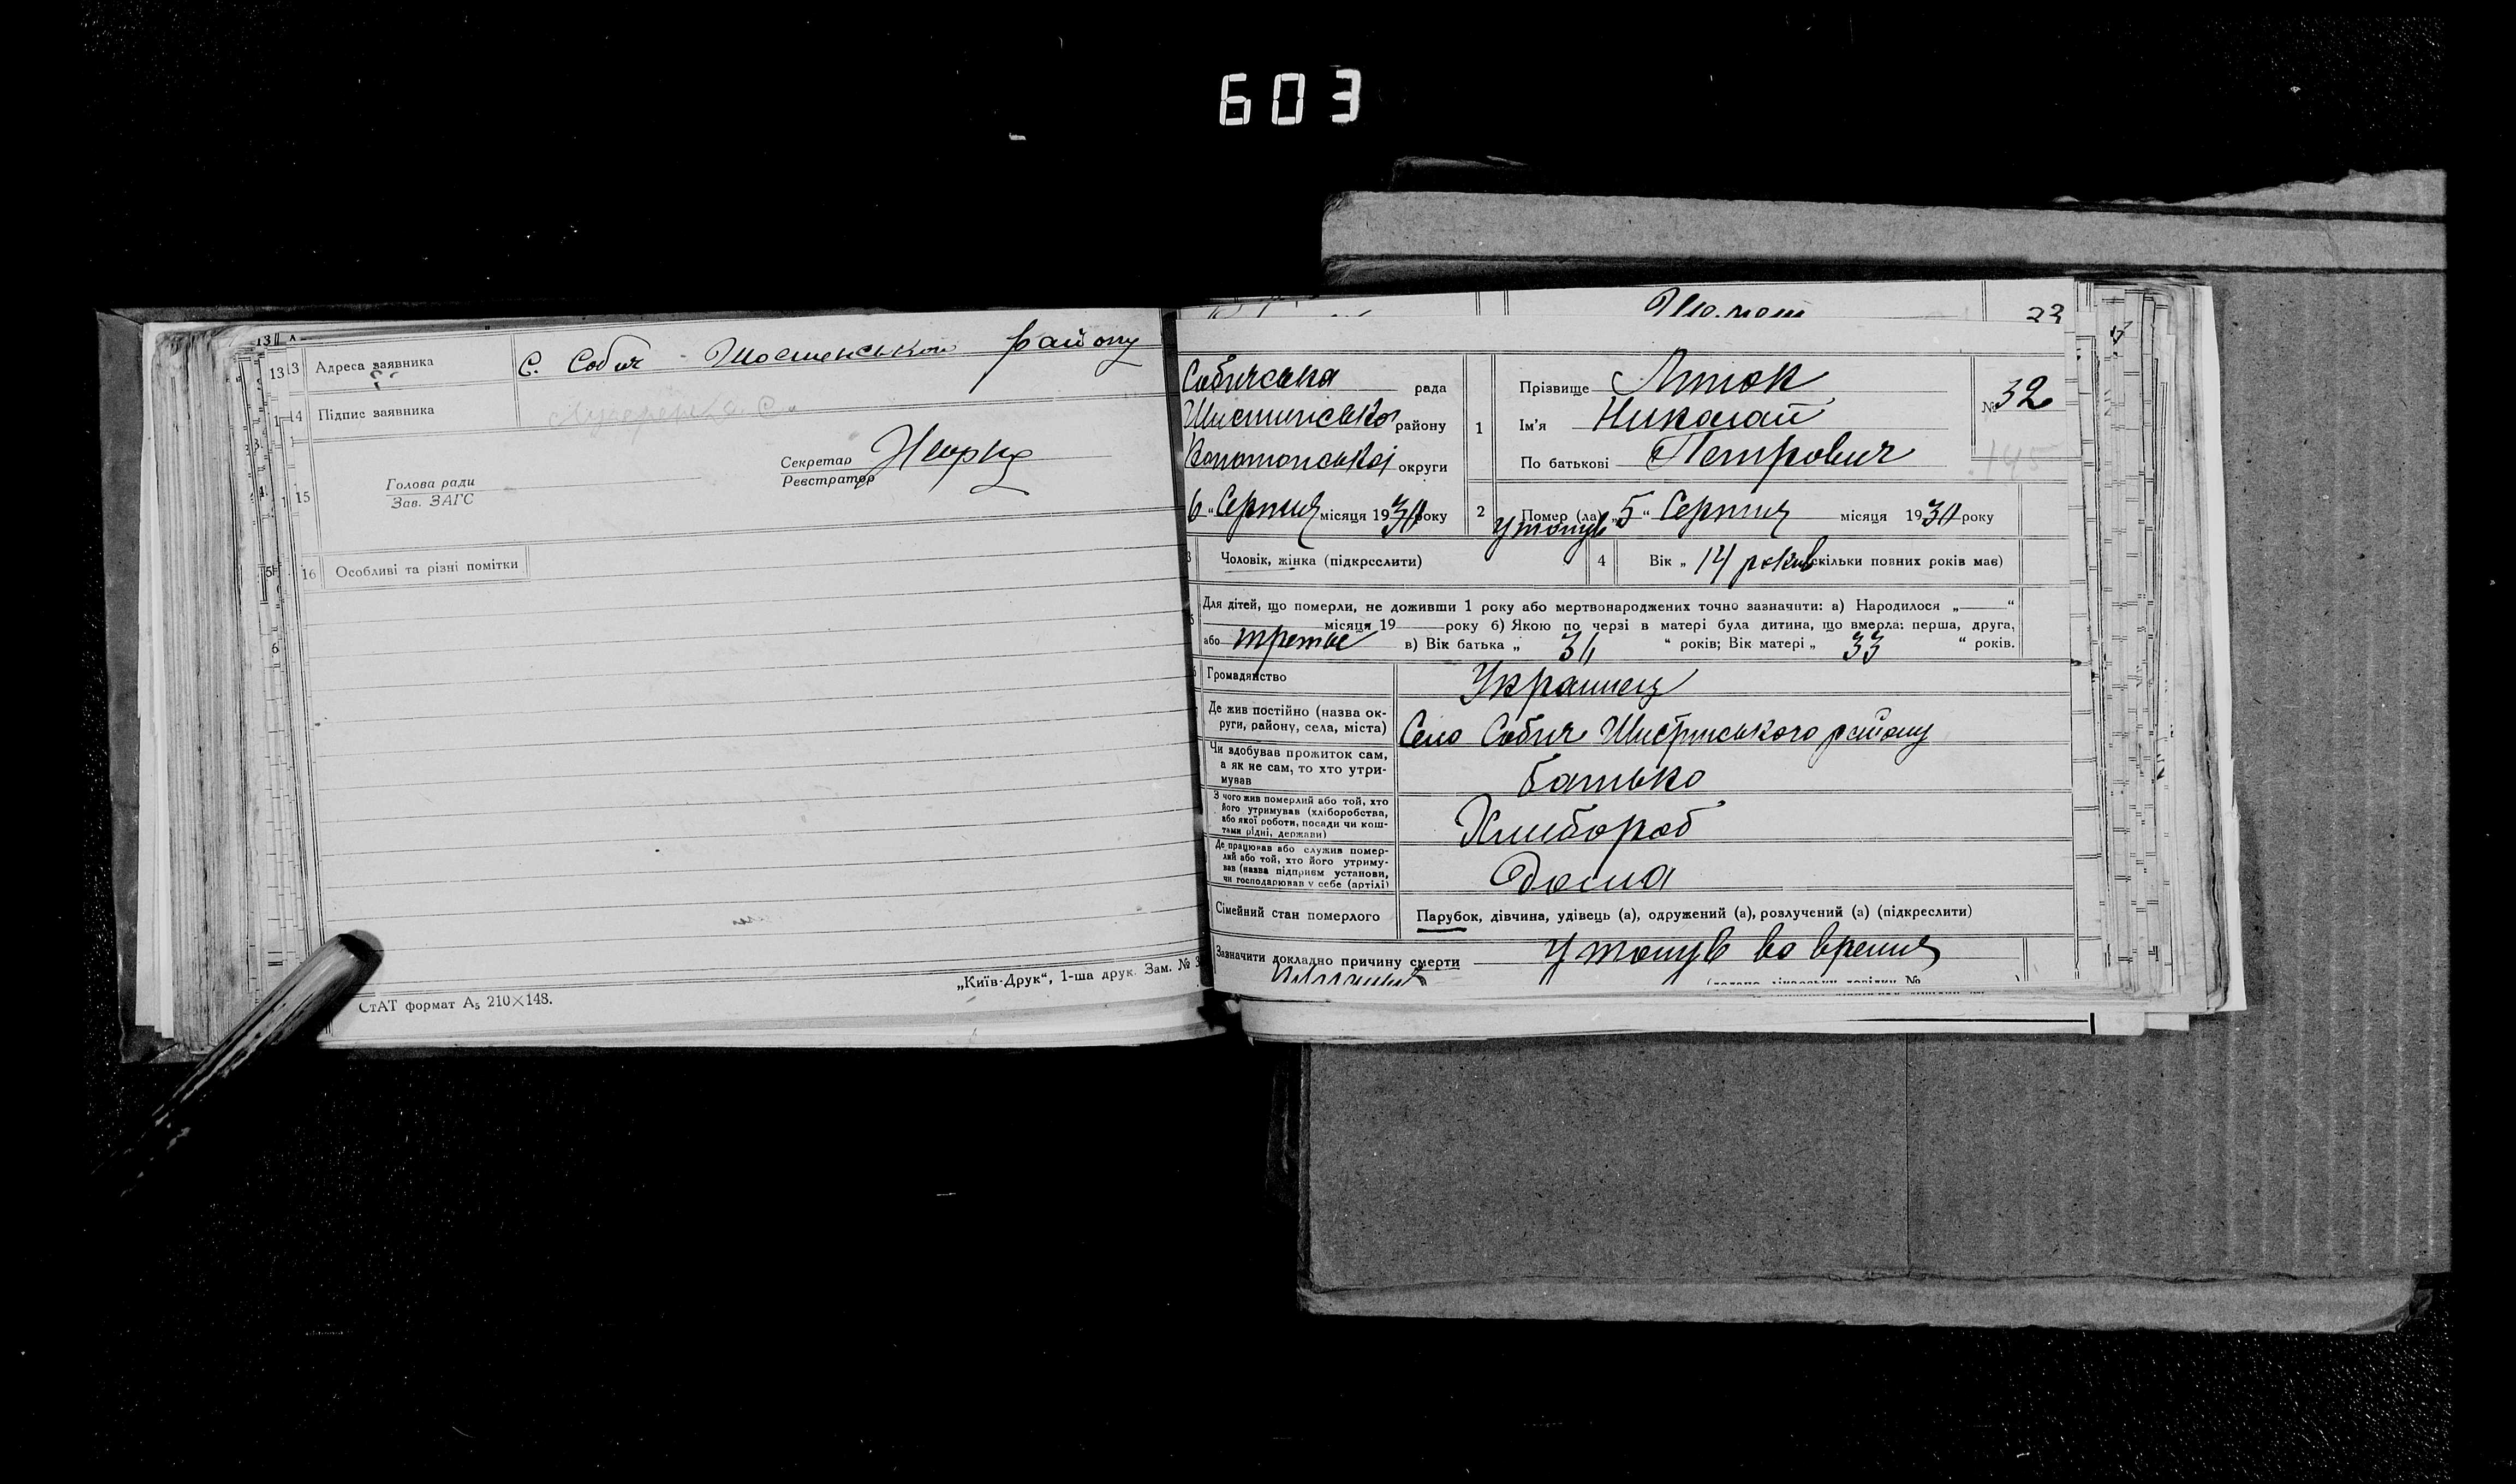 603
13 Адреса заявника С. Собич Шостенського району
14 Підпис заявника
15 Голова ради
Зав. ЗАГС
Секретар
Реєстратор
16 Особливі та різні помітки
СтАТ формат А₅ 210×148.
„Київ-Друк“, 1-ша друк. Зам. № 3
Собичська рада
Шостинського району
Конотопської округи
6 “ Серпня місяця 1930 року
1 Прізвище
Ім’я Николай
По батькові Петрович
№ 32
145
2 Помер (ла) „5“ Серпня місяця 1930 року
утонув
3 Чоловік, жінка (підкреслити)
4 Вік „ 14 років скільки повних років має)
Для дітей, що померли, не доживши 1 року або мертвонароджених точно зазначити: а) Народилося „ “
місяця 19 року б) Якою по черзі в матері була дитина, що вмерла: перша, друга,
або третье в) Вік батька „ 34 “ років; Вік матері „ 33 “ років.
Громадянство Украинец
Де жив постійно (назва ок-
руги, району, села, міста) Село Собич Шостинського району
Чи здобував прожиток сам,
а як не сам, то хто утри-
мував батько
З чого жив померлий або той, хто
його утримував (хліборобства,
або якої роботи, посади чи кош-
тами рідні, держави) Хлибороб
Де працював або служив помер-
лий або той, хто його утриму-
вав (назва підприєм установи,
чи господарював у себе (артілі) Дома
Сімейний стан померлого Парубок, дівчина, удівець (а), одружений (а), розлучений (а) (підкреслити)
Зазначити докладно причину смерти утонув во время